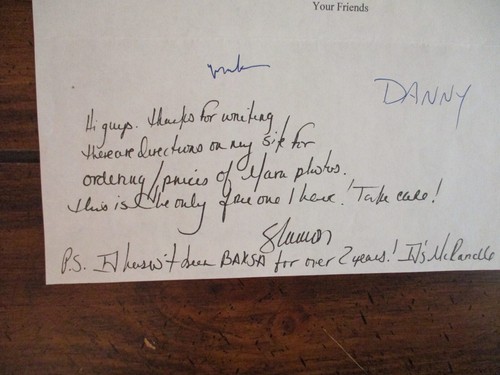 Your Friends
DANNY
Hi guys. Thanks for writing!
There are directions on my site for
ordering/prices of Mara photos.
This is the only one I have! Take care!
Shannon
P.S. It hasn't been BAKSA for over 2 years! It's McRandle